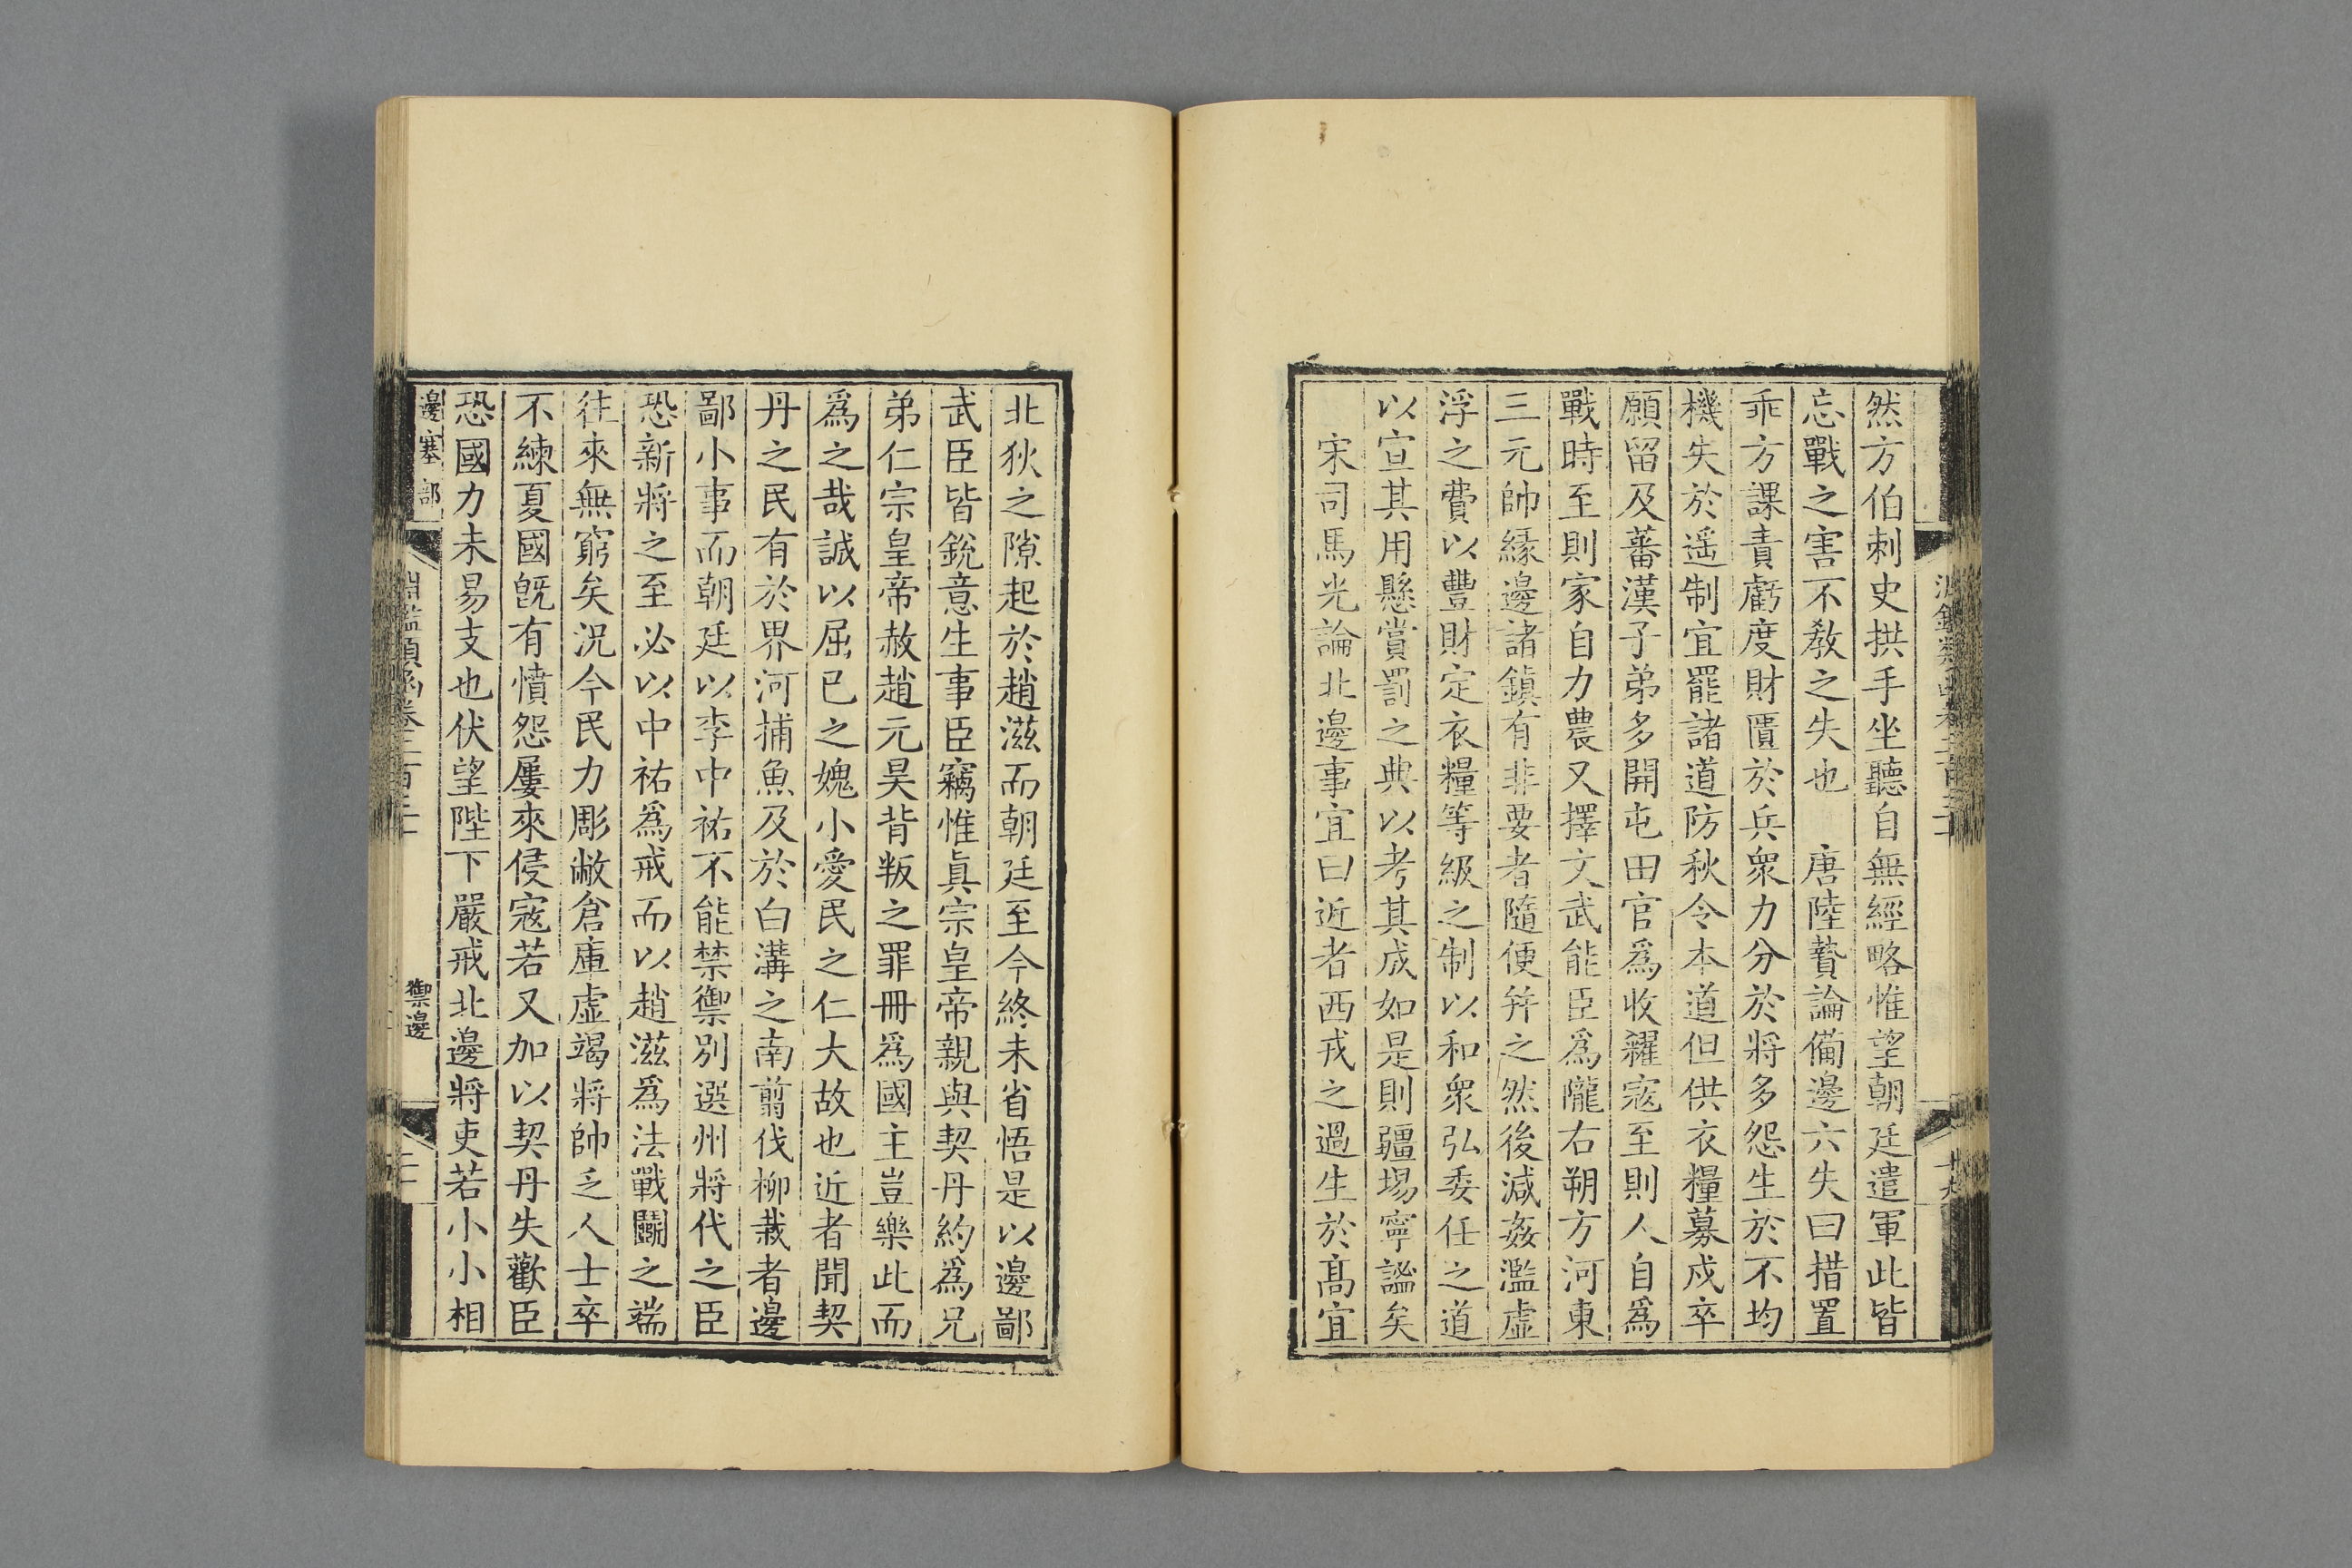 然方伯刺史拱手坐聽自無經略惟望朝廷遣軍此皆
忘戰之害不教之失也　唐陸贄論備邊六失曰措置
乖方課責虧度財匱於兵衆力分於將多怨生於不均
機失於遥制宜罷諸道防秋令本道但供衣糧募戍卒
願留及蕃漢子弟多開屯田官爲收糴寇至則人自爲
戰時至則家自力農又擇文武能臣爲隴右朔方河東
三元帥縁邊諸鎮有非要者隨便并之然後減姦濫虛
浮之費以豐財定衣糧等級之制以和衆弘委任之道
以宣其用懸賞罰之典以考其成如是則疆埸寧謐矣
宋司馬光論北邊事宜曰近者西戎之過生於髙宜
北狄之隙起於趙滋而朝廷至今終未省悟是以邊鄙
武臣皆銳意生事臣竊惟眞宗皇帝親與契丹約爲兄
弟仁宗皇帝赦趙元昊背叛之罪冊爲國主豈樂此而
爲之哉誠以屈已之媿小愛民之仁大故也近者聞契
丹之民有於界河捕魚及於白溝之南翦伐柳栽者邊
鄙小事而朝廷以李中祐不能禁禦別選州將代之臣
恐新將之至必以中祐爲戒而以趙滋爲法戰鬭之端
徃來無窮矣況今民力彫敝倉庫虛竭將帥乏人士卒
不練夏國旣有憤怨屢來侵寇若又加以契丹失歡臣
恐國力未易支也伏望陛下嚴戒北邊將吏若小小相
邊塞部
淵鑑類函卷二百三十
禦邊